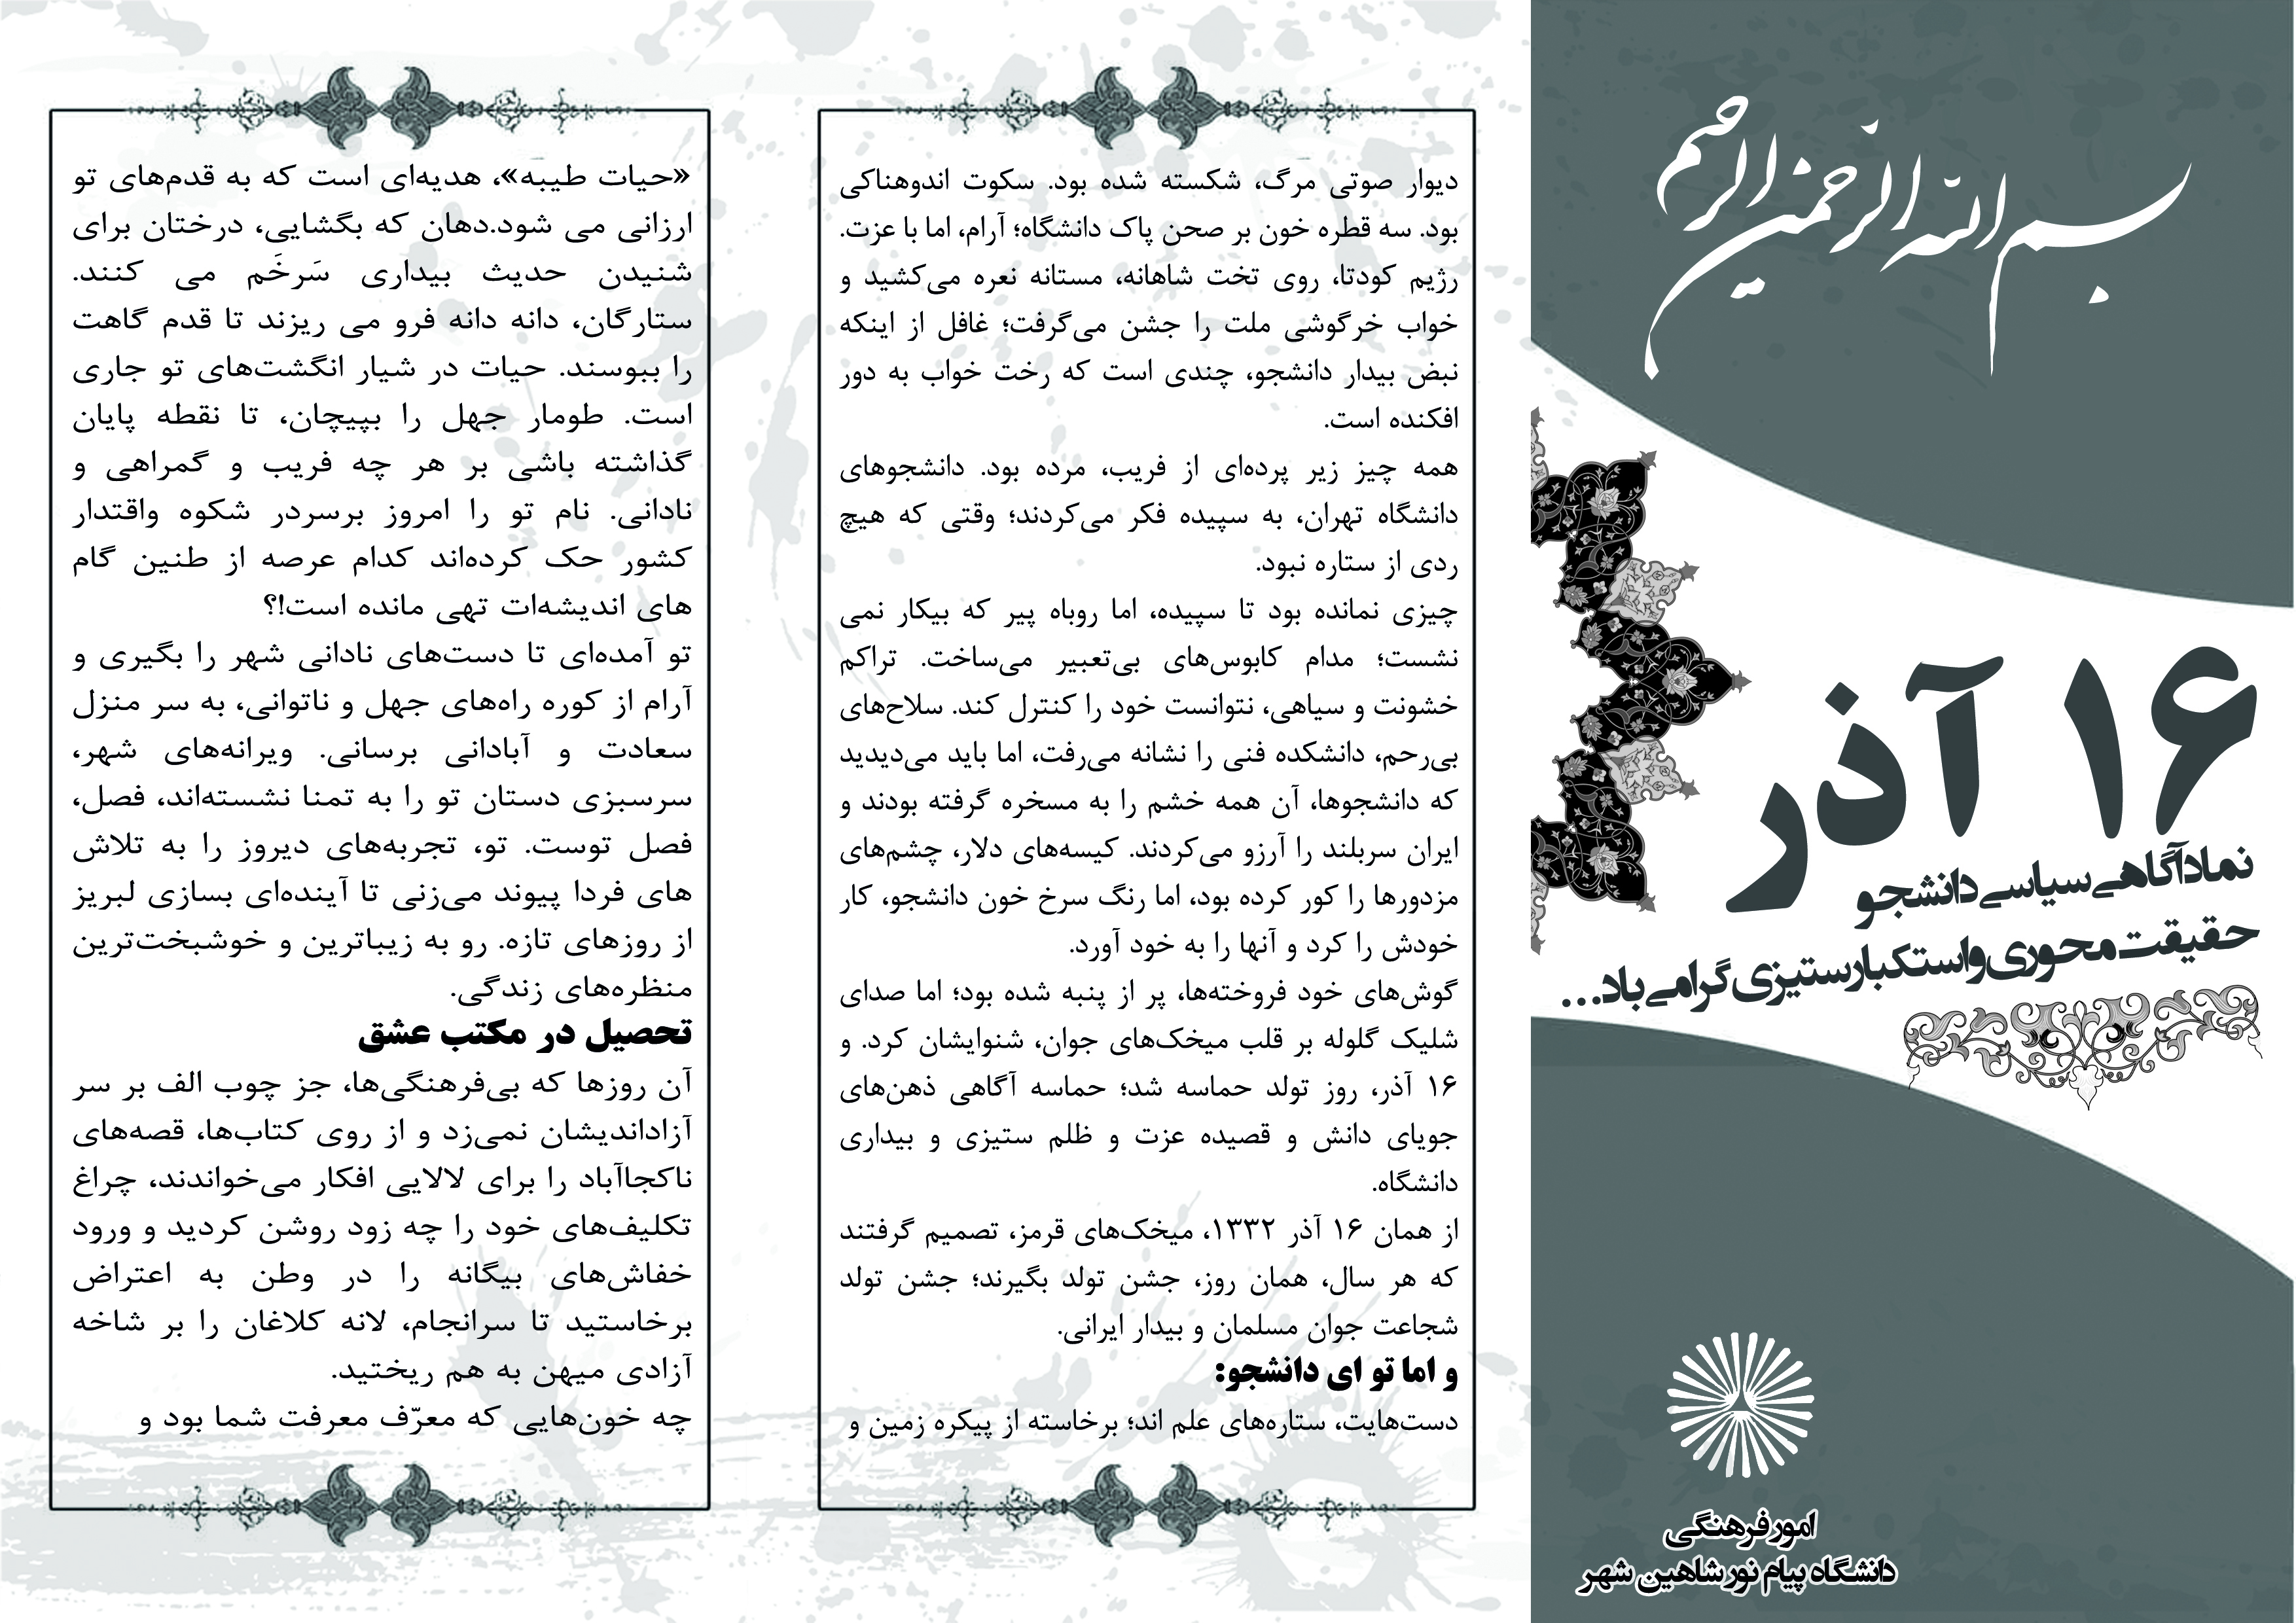 بسم الله الرحمن الرحیم
۱۶ آذر
نماد آگاهی سیاسی دانشجو
حقیقت محوری و استکبارستیزی گرامی باد...
امور فرهنگی
دانشگاه پیام نور شاهین شهر
دیوار صوتی مرگ، شکسته شده بود. سکوت اندوهناکی
بود. سه قطره خون بر صحن پاک دانشگاه؛ آرام، اما با عزت.
رژیم کودتا، روی تخت شاهانه، مستانه نعره می‌کشید و
خواب خرگوشی ملت را جشن می‌گرفت؛ غافل از اینکه
نبض بیدار دانشجو، چندی است که رخت خواب به دور
افکنده است.
همه چیز زیر پرده‌ای از فریب، مرده بود. دانشجوهای
دانشگاه تهران، به سپیده فکر می‌کردند؛ وقتی که هیچ
ردی از ستاره نبود.
چیزی نمانده بود تا سپیده، اما روباه پیر که بیکار نمی
نشست؛ مدام کابوس‌های بی‌تعبیر می‌ساخت. تراکم
خشونت و سیاهی، نتوانست خود را کنترل کند. سلاح‌های
بی‌رحم، دانشکده فنی را نشانه می‌رفت، اما باید می‌دیدید
که دانشجوها، آن همه خشم را به مسخره گرفته بودند و
ایران سربلند را آرزو می‌کردند. کیسه‌های دلار، چشم‌های
مزدورها را کور کرده بود، اما رنگ سرخ خون دانشجو، کار
خودش را کرد و آنها را به خود آورد.
گوش‌های خود فروخته‌ها، پر از پنبه شده بود؛ اما صدای
شلیک گلوله بر قلب میخک‌های جوان، شنوایشان کرد. و
۱۶ آذر، روز تولد حماسه شد؛ حماسه آگاهی ذهن‌های
جویای دانش و قصیده عزت و ظلم ستیزی و بیداری
دانشگاه.
از همان ۱۶ آذر ۱۳۳۲، میخک‌های قرمز، تصمیم گرفتند
که هر سال، همان روز، جشن تولد بگیرند؛ جشن تولد
شجاعت جوان مسلمان و بیدار ایرانی.
و اما تو ای دانشجو:
دست‌هایت، ستاره‌های علم اند؛ برخاسته از پیکره زمین و
«حیات طیبه»، هدیه‌ای است که به قدم‌های تو
ارزانی می شود.دهان که بگشایی، درختان برای
شنیدن حدیث بیداری سَرخَم می کنند.
ستارگان، دانه دانه فرو می ریزند تا قدم گاهت
را ببوسند. حیات در شیار انگشت‌های تو جاری
است. طومار جهل را بپیچان، تا نقطه پایان
گذاشته باشی بر هر چه فریب و گمراهی و
نادانی. نام تو را امروز برسردر شکوه واقتدار
کشور حک کرده‌اند کدام عرصه از طنین گام
های اندیشه‌ات تهی مانده است!؟
تو آمده‌ای تا دست‌های نادانی شهر را بگیری و
آرام از کوره راه‌های جهل و ناتوانی، به سر منزل
سعادت و آبادانی برسانی. ویرانه‌های شهر،
سرسبزی دستان تو را به تمنا نشسته‌اند، فصل،
فصل توست. تو، تجربه‌های دیروز را به تلاش
های فردا پیوند می‌زنی تا آینده‌ای بسازی لبریز
از روزهای تازه. رو به زیباترین و خوشبخت‌ترین
منظره‌های زندگی.
تحصیل در مکتب عشق
آن روزها که بی‌فرهنگی‌ها، جز چوب الف بر سر
آزاداندیشان نمی‌زد و از روی کتاب‌ها، قصه‌های
ناکجاآباد را برای لالایی افکار می‌خواندند، چراغ
تکلیف‌های خود را چه زود روشن کردید و ورود
خفاش‌های بیگانه را در وطن به اعتراض
برخاستید تا سرانجام، لانه کلاغان را بر شاخه
آزادی میهن به هم ریختید.
چه خون‌هایی که معرّف معرفت شما بود و